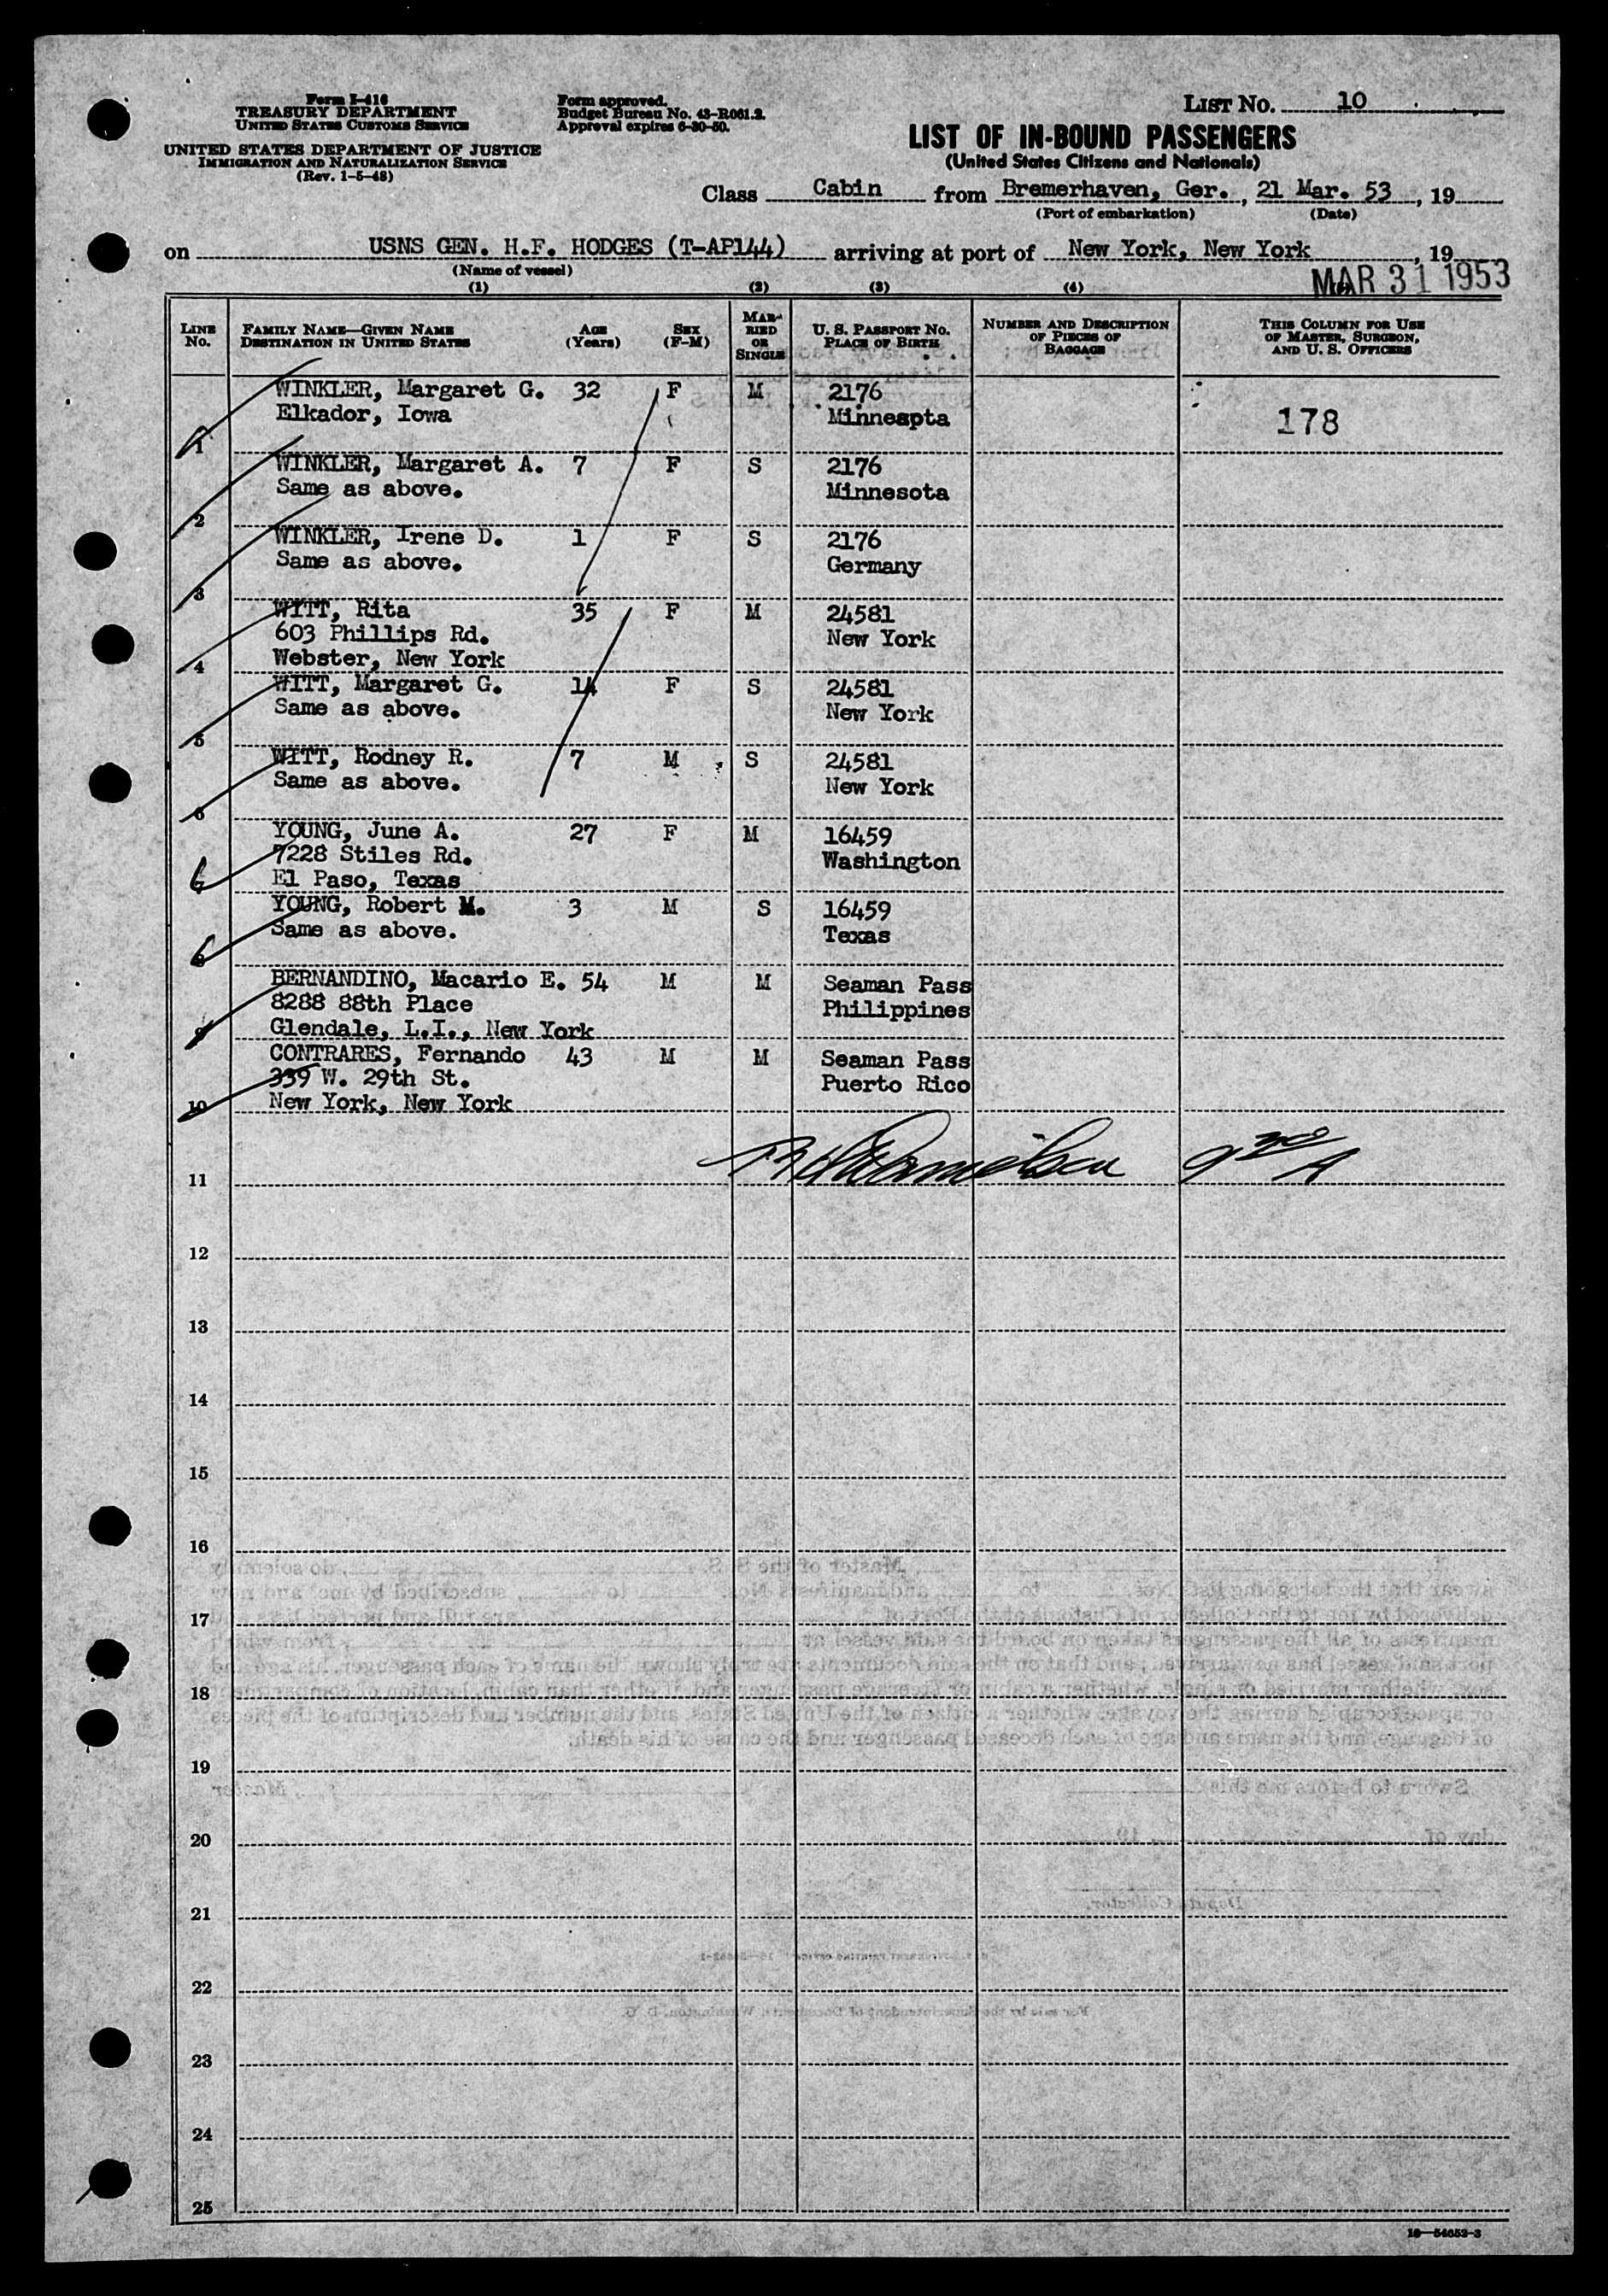 Form I-416
TREASURY DEPARTMENT
UNITED STATES CUSTOMS SERVICE
UNITED STATES DEPARTMENT OF JUSTICE
IMMIGRATION AND NATURALIZATION SERVICE
(Rev. 1-5-48)
Form approved.
Budget Bureau No. 43-R061.2.
Approval expires 6-30-50.
LIST NO. 10
LIST OF IN-BOUND PASSENGERS
(United States Citizens and Nationals)
Class Cabin from Bremerhaven, Ger., 21 Mar. 53, 19
(Port of embarkation) (Date)
on USNS GEN. H.F. HODGES (T-AP144) arriving at port of New York, New York, 19
(Name of vessel)
MAR 31 1953
(1) (2) (3) (4)
LINE No. FAMILY NAME—GIVEN NAME DESTINATION IN UNITED STATES AGE (Years) SEX (F-M) MARRIED OR SINGLE U. S. PASSPORT NO. PLACE OF BIRTH NUMBER AND DESCRIPTION OF PIECES OF BAGGAGE THIS COLUMN FOR USE OF MASTER, SURGEON, AND U. S. OFFICERS
WINKLER, Margaret G. 32 F M 2176
Elkador, Iowa Minnespta 178
1
WINKLER, Margaret A. 7 F S 2176
Same as above. Minnesota
2
WINKLER, Irene D. 1 F S 2176
Same as above. Germany
3
WITT, Rita 35 F M 24581
603 Phillips Rd. New York
4 Webster, New York
WITT, Margaret G. 14 F S 24581
Same as above. New York
5
WITT, Rodney R. 7 M S 24581
Same as above. New York
6
YOUNG, June A. 27 F M 16459
7228 Stiles Rd. Washington
7 El Paso, Texas
YOUNG, Robert M. 3 M S 16459
Same as above. Texas
8
BERNANDINO, Macario E. 54 M M Seaman Pass
8288 88th Place Philippines
9 Glendale, L.I., New York
CONTRARES, Fernando 43 M M Seaman Pass
339 W. 29th St. Puerto Rico
10 New York, New York
11
12
13
14
15
16
17
18
19
20
21
22
23
24
25
16—54652-3